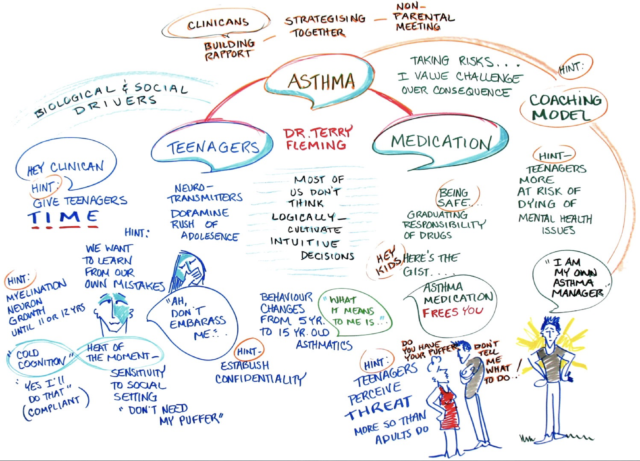 CLINICANS
BUILDING
RAPPORT
STRATEGISING
TOGETHER
NON-
PARENTAL
MEETING
BIOLOGICAL & SOCIAL
DRIVERS
ASTHMA
TAKING RISKS...
I VALUE CHALLENGE
OVER CONSEQUENCE
HINT:
COACHING
MODEL
TEENAGERS
DR. TERRY
FLEMING
MEDICATION
HEY CLINICAN
HINT:
GIVE TEENAGERS
TIME
NEURO-
TRANSMITTERS
DOPAMINE
RUSH OF
ADOLESENCE
MOST OF
US DON'T
THINK
LOGICALLY-
CULTIVATE
INTUITIVE
DECISIONS
BEING
SAFE...
GRADUATING
RESPONSIBILITY
OF DRUGS
HINT-
TEENAGERS
MORE
AT RISK OF
DYING OF
MENTAL HEALTH
ISSUES
HINT:
WE WANT
TO LEARN
FROM OUR
OWN MISTAKES
HEY
KIDS
HERE'S THE
GIST....
ASTHMA
MEDICATION
FREES YOU
"I AM
MY OWN
ASTHMA
MANAGER"
HINT:
MYELINATION
NEURON
GROWTH
UNTIL 11 OR 12 YRS
"AH,
DON'T
EMBARASS
ME...
BEHAVIOUR
CHANGES
FROM 5 YR.
TO 15 YR OLD
ASTHMATICS
"WHAT
IT MEANS
TO ME IS..."
"COLD
COGNITION"
"YES I'LL
DO THAT"
(COMPLIANT)
HEAT OF
THE MOMENT-
SENSITIVITY
TO SOCIAL
SETTING
"DON'T NEED
MY PUFFER"
HINT-
ESTABLISH
CONFIDENTIALITY
HINT:
TEENAGERS
PERCEIVE
THREAT
MORE SO THAN
ADULTS DO
DO
YOU HAVE
YOUR PUFFER
DON'T
TELL
ME
WHAT
TO DO..!